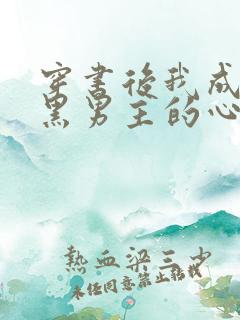 穿书后我成
黑男主的心
热血梁三少
未经同意禁止转载